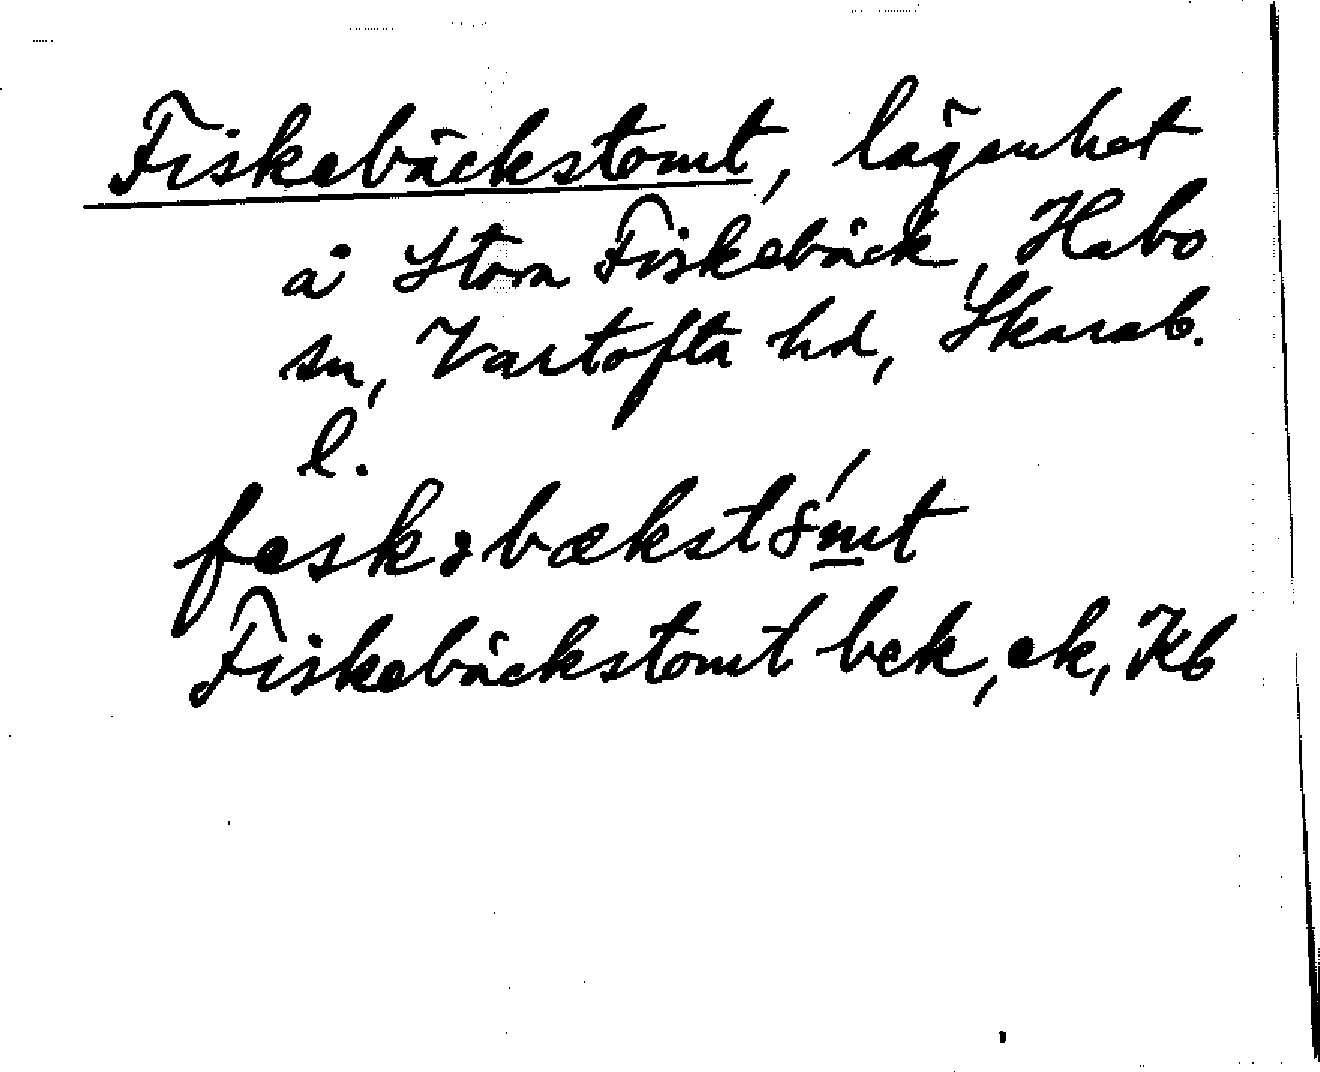 Fiskebäckstomt, lägenhet
å Stora Fiskebäck, Habo
sn, Vartofta hd, Skarab.
l.
Fiskebäckstomt bek, ek, Kb